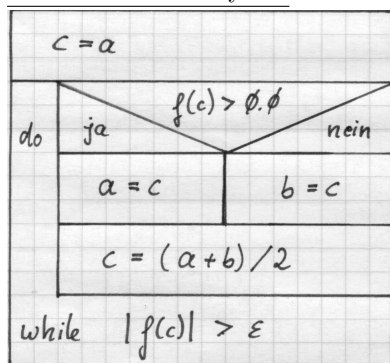 c = a
f(c) > 0.0
do ja nein
a = c b = c
c = (a+b)/2
while |f(c)| > ε